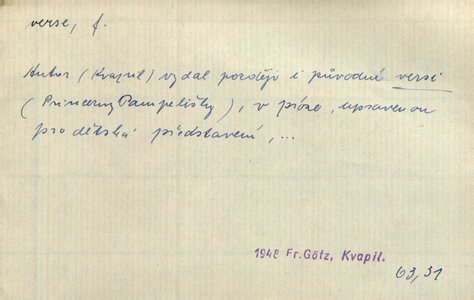 verse, f.
Autor (Kvapil) vydal později i původní versi
(Princezny Pampelišky), v próze, upravenou
pro dětská představení, ...
1948 Fr.Götz, Kvapil.
63,31